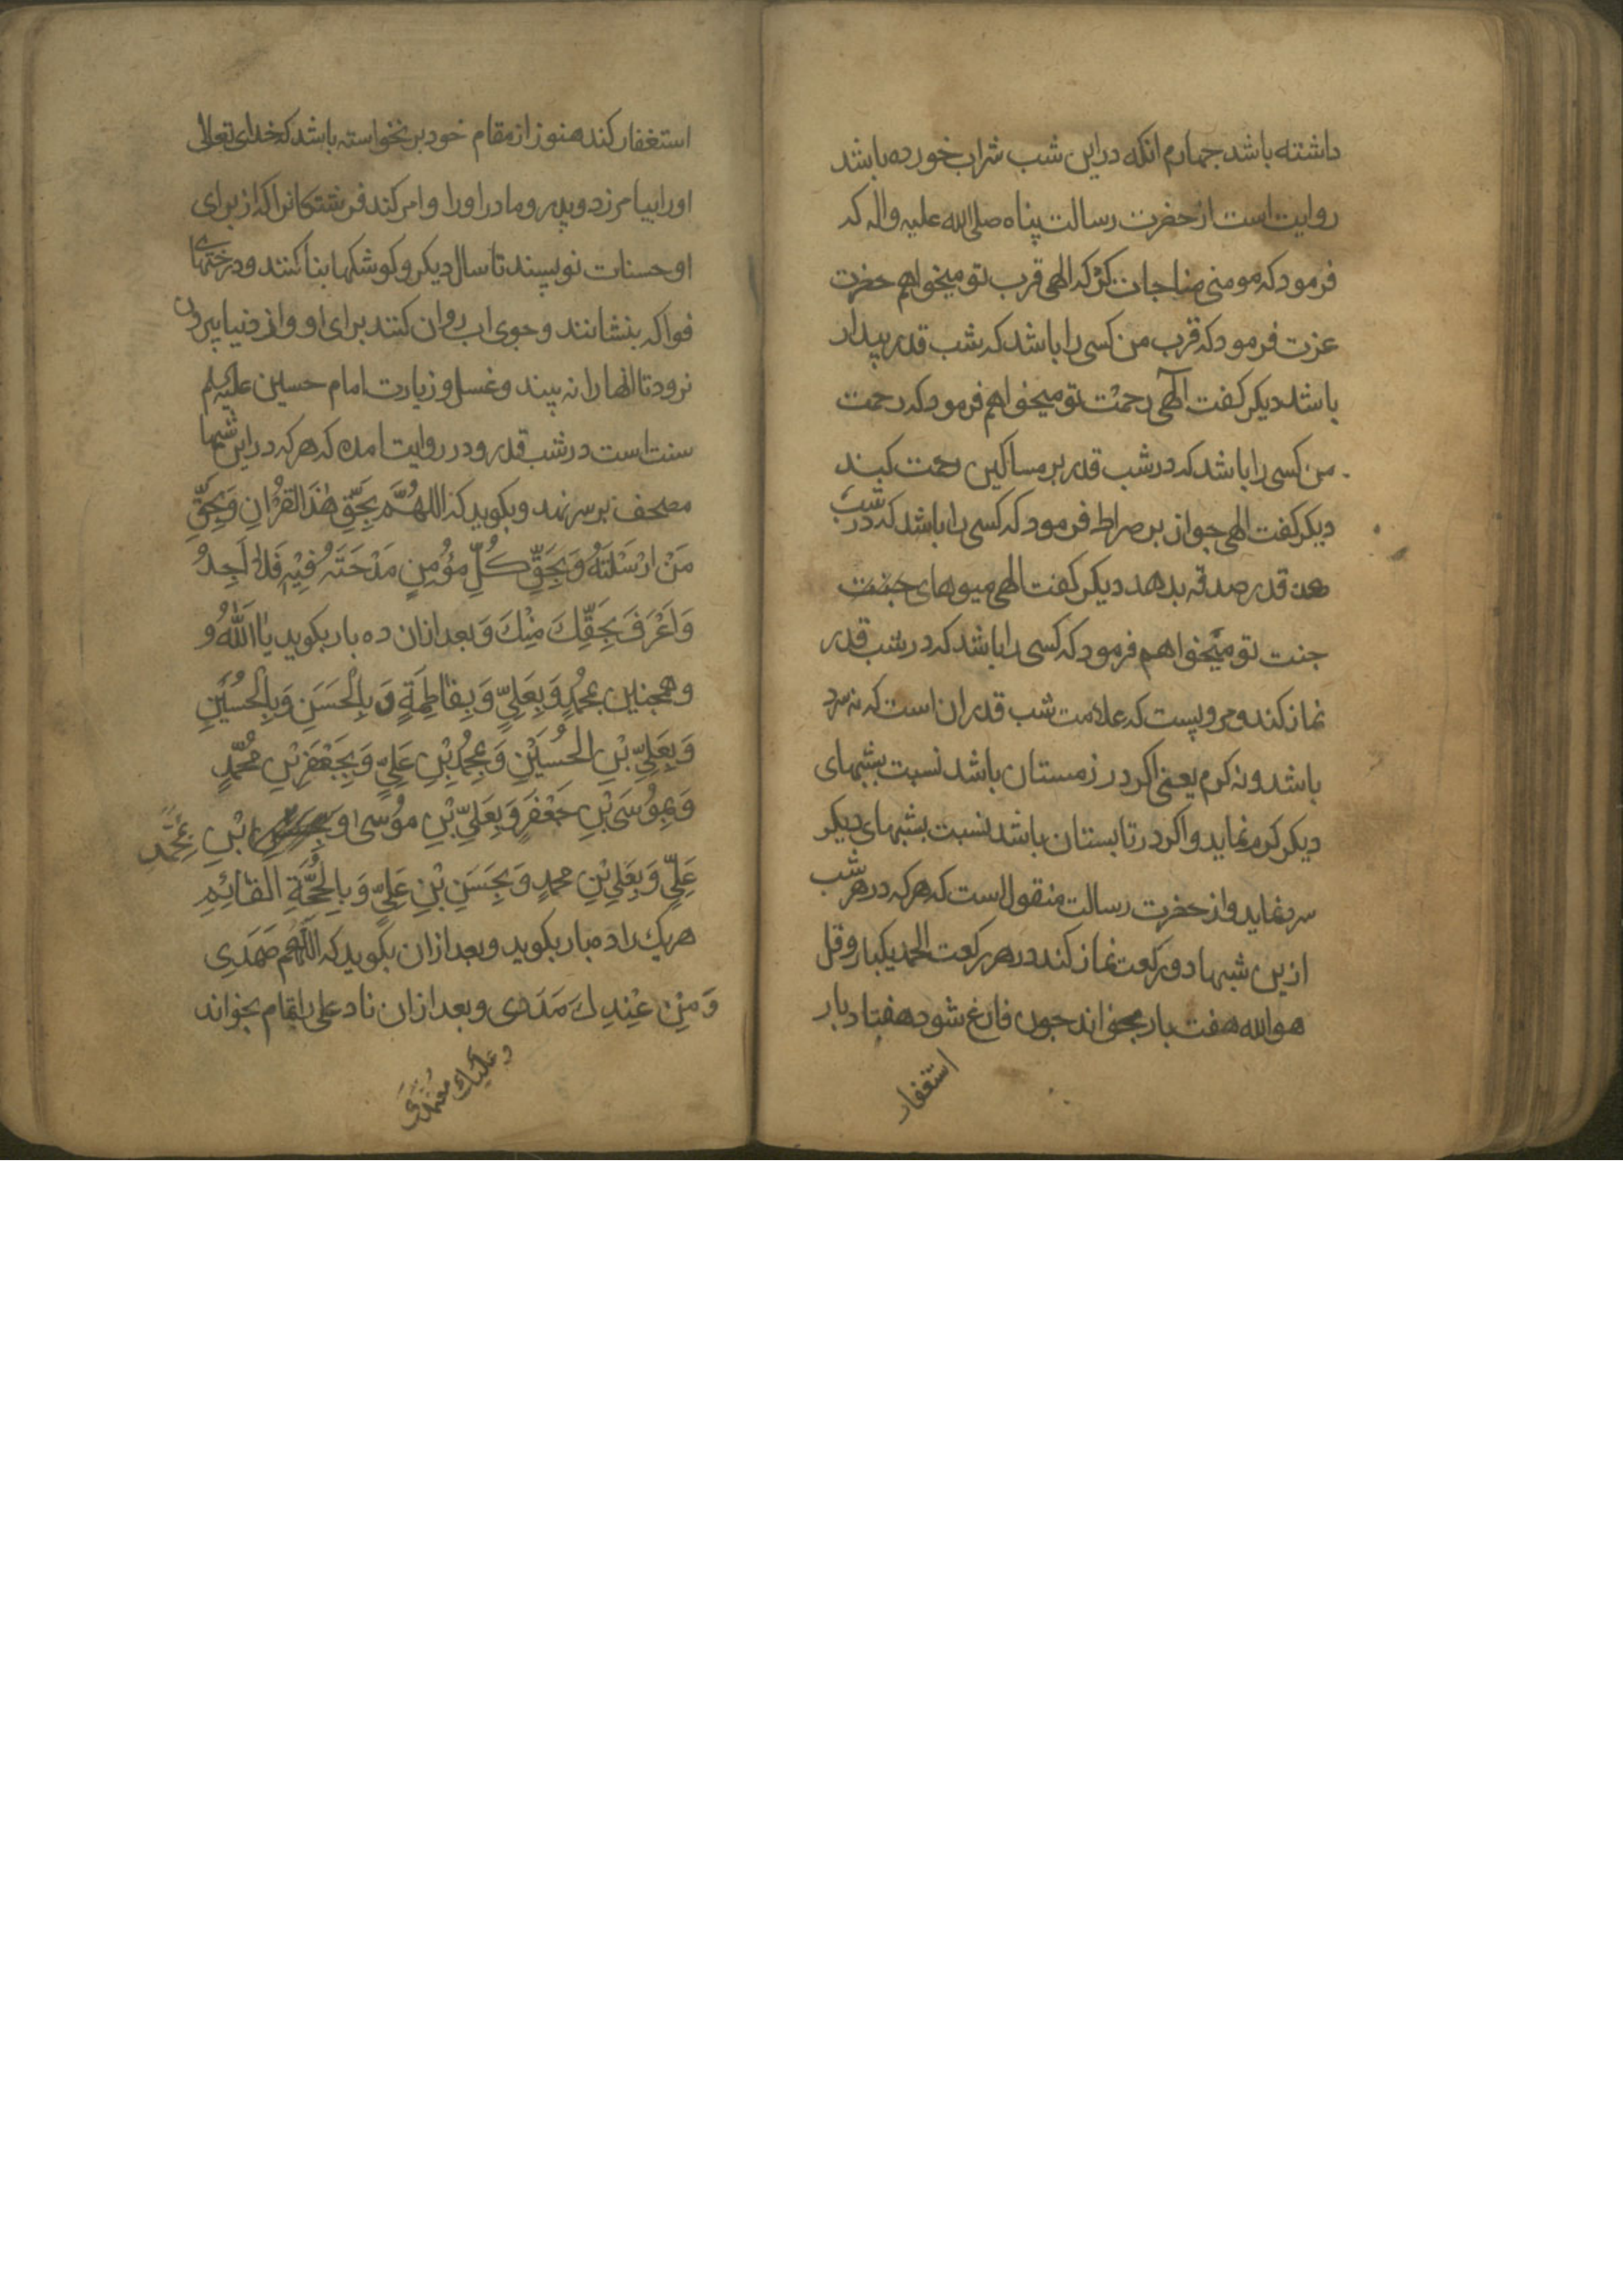 داشته باشد جهارم انکه در این شب شراب خورده باشد
روایت است از حضرت رسالت پناه صلی الله علیه واله که
فرمود که مومنی مناجات کرد که الهی قرب تو میخواهم حضرت
عزت فرمود که قرب من کسی را باشد که شب قدر بیدار
باشد دیکر کفت الهی رحمت تو میخواهم فرمود که رحمت
من کسی را باشد که در شب قدر بر مساکین رحمت کند
دیکر کفت الهی جواز بر صراط فرمود که کسی را باشد که در شب
قدر صدقه بدهد دیکر کفت الهی میوهای جنت
جنت تو میخواهم فرمود که کسی را باشد که در شب قدر
نماز کند و مرویست که علامت شب قدر ان است که نه سرد
باشد و نه کرم یعنی اکر در زمستان باشد نسبت بشبهای
دیکر کرم نماید و اکر در تابستان باشد نسبت بشبهای دیکر
سرد نماید و از حضرت رسالت منقول است که هر که در هر شب
ازین شبها دو رکعت نماز کند در هر رکعت الحمد یکبار و قل
هو الله هفت بار بخواند جون فارغ شود هفتاد بار
استغفار
استغفار کند هنوز از مقام خود برنخواسته باشد که خدای تعالی
اورا بیامرزد و پدر و مادر اورا و امر کند فرشتکانرا که از برای
او حسنات نویسند تا سال دیکر و کوشکها بنا کنند و درختهای
فواکه بنشانند و جوی اب روان کنند برای او و از دنیا بیرون
نرود تا انها را نه بیند و غسل و زیارت امام حسین علیه السلم
سنت است در شب قدر و در روایت امده که هر که در این شبها
مصحف بر سر نهد و بکوید که اللهُمَّ بِحَقِّ هٰذَا القُرْانِ وَبِحَقِّ
مَنْ ارْسَلْتَهُ وَبِحَقِّ كُلِّ مؤُمِنٍ مَدْحَتَهُ فِيْهِ فَلاٰ اَجِدُ
وَاَعْرَفَ بِحَقِّكَ مِنْكَ وَبعد ازان ده بار بکوید یٰا اَللّٰهُ و
و همجنین بمُحمدٍ وَبِعَلِيٍّ وَبِفاطِمَةٍ وَ بِالْحَسَنِ وَبِالْحُسَيْنِ
وَبِعَلِيِّ بْنِ الحُسَيْنِ وَبِمُحمدِ بْنِ عَلِيٍّ وَبِجَعْفَرِ بْنِ مُحَمَّدٍ
وَبِمُوْسَى بْنِ جَعْفَرٍ وَبِعَلِيِّ بْنِ مُوْسىٰ وَ بِمُحَمَّدِ ابْنِ
عَلِيٍّ وَبِعَلِيِ بْنِ محمدٍ وَبِحَسَنِ بْنِ عَلِيٍّ وَبِالْحُجَّةِ القائِمِ
هر یک را ده بار بکوید و بعد ازان بکوید که اَللّٰهُم صَمَدِی
وَ مِنْ عِنْدِكَ مَدَدی و بعد ازان ناد علی را بتمام بخواند
وَعَلَيْكَ مُعْتَمَدِي